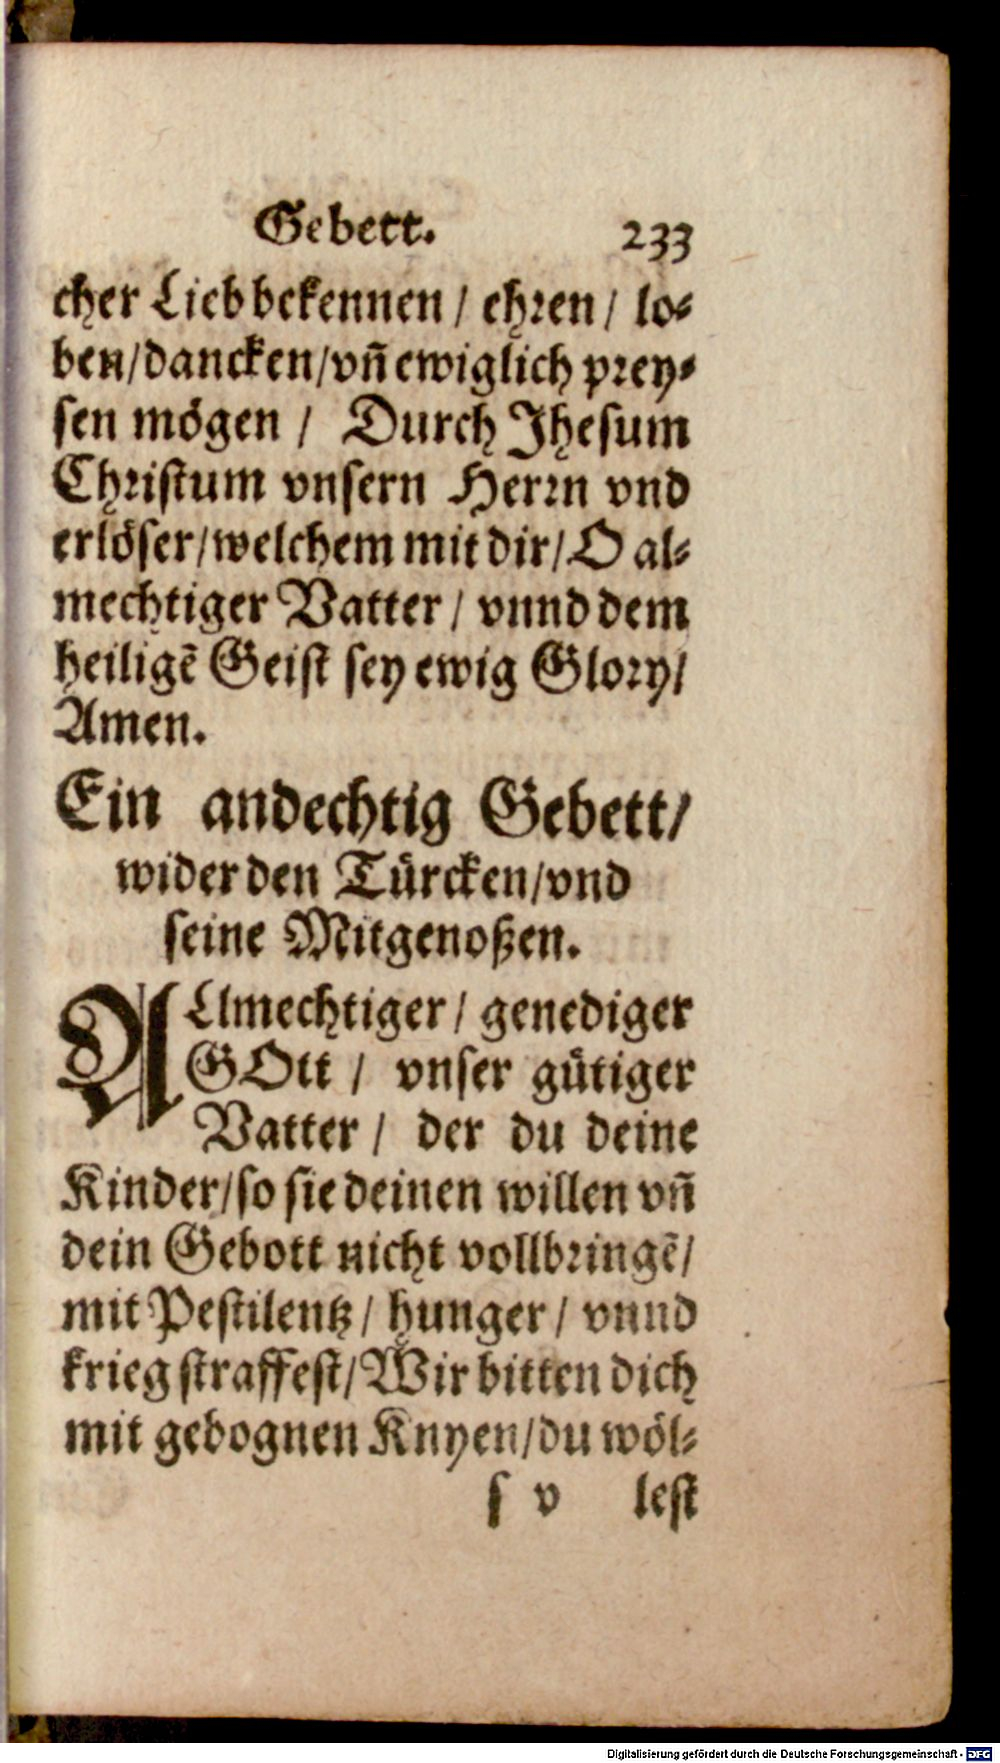 Gebett. 233
cher Lieb bekennen / ehren / lo-
ben/dancken/vñ ewiglich prey-
sen mögen / Durch Jhesum
Christum vnsern Herrn vnd
erlöser/welchem mit dir/O al-
mechtiger Vatter / vnnd dem
heiligē Geist sey ewig Glory/
Amen.
Ein andechtig Gebett/
wider den Türcken/vnd
seine Mitgenoßen.
ALlmechtiger / genediger
GOtt / vnser gütiger
Vatter / der du deine
Kinder/so sie deinen willen vñ
dein Gebott nicht vollbringē/
mit Pestilentz / hunger / vnnd
krieg straffest/Wir bitten dich
mit gebognen Knyen/du wöl-
s v lest
Digitalisierung gefördert durch die Deutsche Forschungsgemeinschaft - DFG